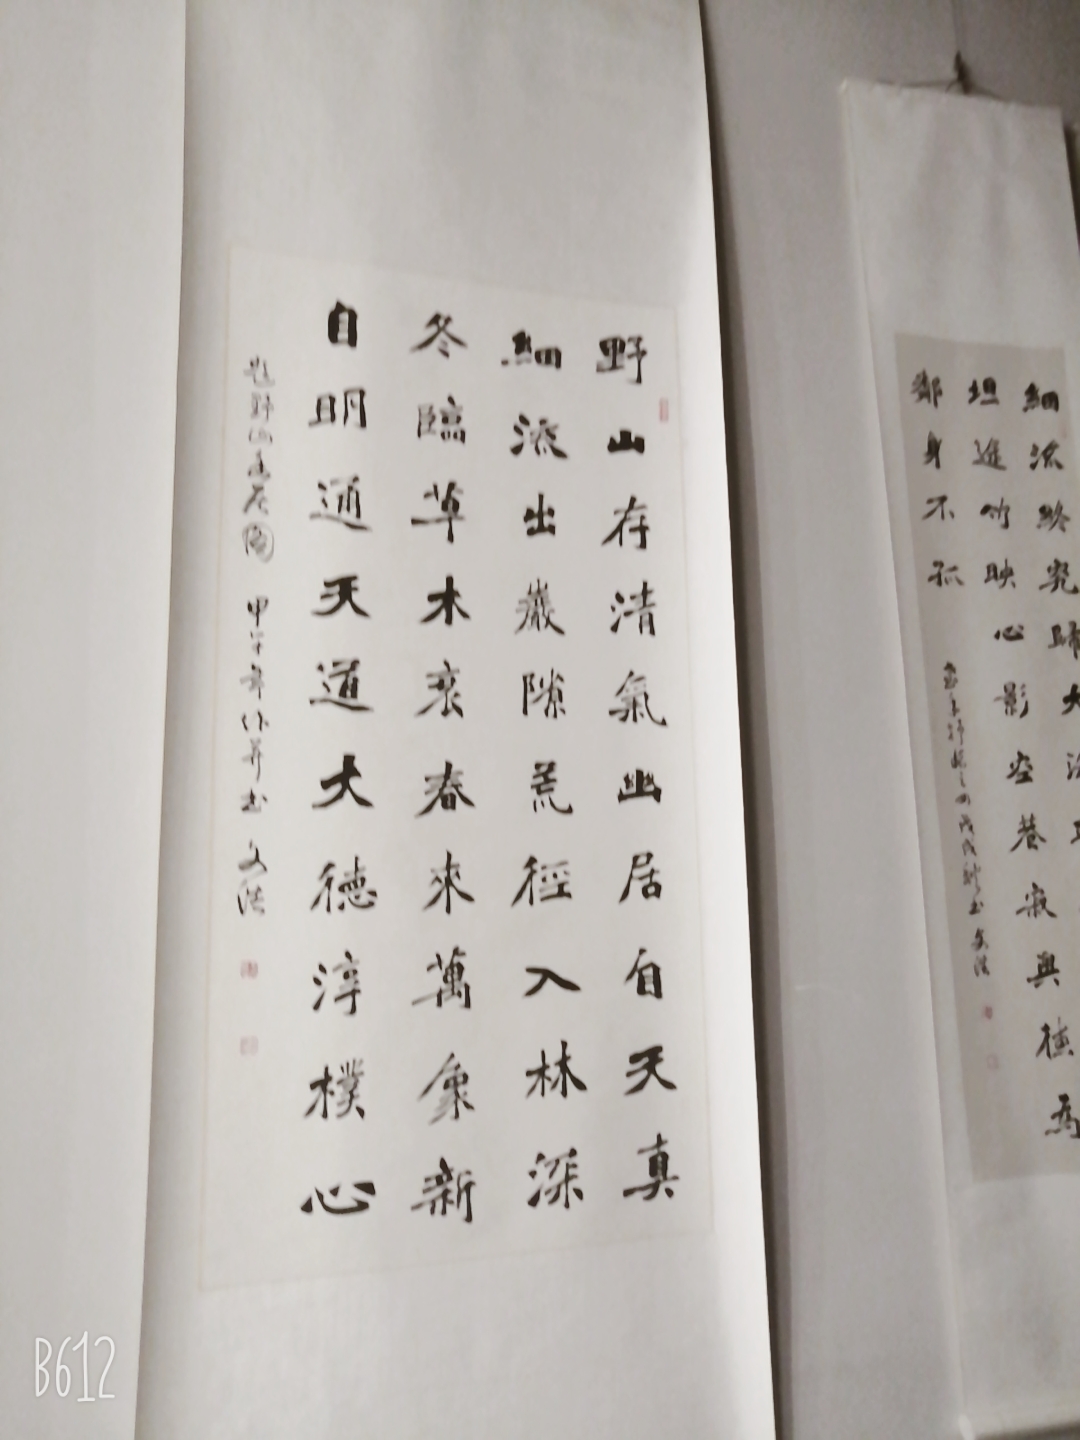 野山存清氣幽居自天真
細流出巖隙荒徑入林深
冬臨草木衰春來萬象新
自明通天道大德淳樸心
題野山幽居圖 甲午年作并書 文浩
細流終究歸大
坦途竹映心影空巷寂與德為
鄰身不孤
戊戌秋書 文浩
B612